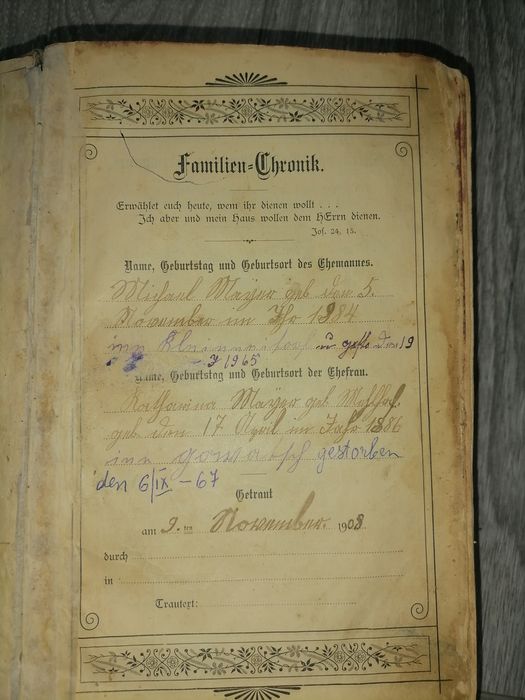 Familien-Chronik.
Erwählet euch heute, wem ihr dienen wollt . . .
Ich aber und mein Haus wollen dem HErrn dienen.
Jos. 24, 15.
Name, Geburtstag und Geburtsort des Ehemannes.
Michael Mayer geb den 5.
November im Jhr 1884
inn u gest den 19
I 1965
Name, Geburtstag und Geburtsort der Ehefrau.
Katharina Mayer geb
geb den 17 April im Jahr 1886
inn gestorben
den 6/IX - 67
Getraut
am 9. ten November 1908
durch
in
Trautext: